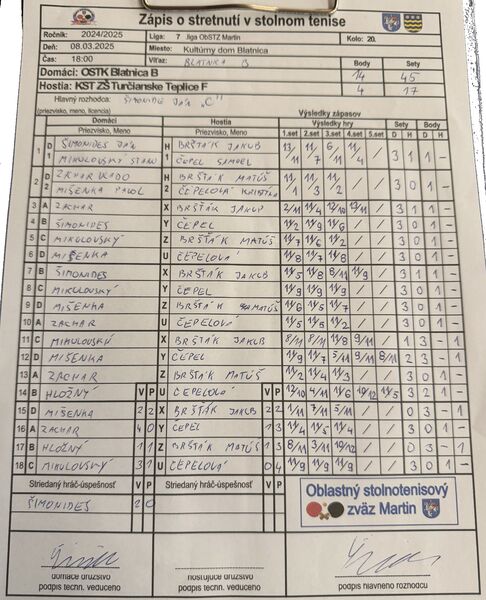 Zápis o stretnutí v stolnom tenise
Ročník: 2024/2025 Liga: 7 .liga ObSTZ Martin Kolo: 20.
Deň: 08.03.2025 Miesto: Kultúrny dom Blatnica
Čas: 18:00 Víťaz: BLATNICA B Body Sety
Domáci: OSTK Blatnica B 14 45
Hostia: KST ZŠ Turčianske Teplice F 4 17
Hlavný rozhodca: ŠIMONIDES JÁN "C"
(priezvisko, meno, licencia) Výsledky zápasov
Domáci Hostia Výsledky hry Sety Body
Priezvisko, Meno Priezvisko, Meno 1.set 2.set 3.set 4.set 5.set D H D H
1 D1 ŠIMONIDES JÁN H1 BRŠŤÁK JAKUB 13/11 11/7 6/11 11/4 / 3 1 1 -
MIKULOVSKÝ STAN ČEPEL SAMUEL
2 D2 ZACHAR VLADO H2 BRŠŤÁK MATÚŠ 11/1 11/3 11/2 / / 3 0 1 -
MIŠENKA PAVOL ČEPELOVÁ KRISTÍNA
3 A ZACHAR X BRŠŤÁK JAKUB 2/11 11/4 12/10 13/11 / 3 1 1 -
4 B ŠIMONIDES Y ČEPEL 11/2 11/9 11/6 / / 3 0 1 -
5 C MIKULOVSKÝ Z BRŠŤÁK MATÚŠ 11/7 11/6 11/2 / / 3 0 1 -
6 D MIŠENKA U ČEPELOVÁ 11/8 11/7 11/8 / / 3 0 1 -
7 B ŠIMONIDES X BRŠŤÁK JAKUB 11/5 11/8 8/11 11/9 / 3 1 1 -
8 C MIKULOVSKÝ Y ČEPEL 11/9 11/9 11/9 / / 3 0 1 -
9 D MIŠENKA Z BRŠŤÁK MATÚŠ 11/6 11/5 11/7 / / 3 0 1 -
10 A ZACHAR U ČEPELOVÁ 11/5 11/5 11/2 / / 3 0 1 -
11 C MIKULOVSKÝ X BRŠŤÁK JAKUB 8/11 8/11 11/8 9/11 / 1 3 - 1
12 D MIŠENKA Y ČEPEL 11/9 11/7 5/11 9/11 8/11 2 3 - 1
13 A ZACHAR Z BRŠŤÁK MATÚŠ 11/2 11/4 11/3 / / 3 0 1 -
14 B HLOŽNÝ V P U ČEPELOVÁ V P 12/10 4/11 11/6 10/12 11/5 3 2 1 -
15 D MIŠENKA 2 2 X BRŠŤÁK JAKUB 2 2 1/11 7/11 5/11 / / 0 3 - 1
16 A ZACHAR 4 0 Y ČEPEL 1 3 11/4 11/5 11/4 / / 3 0 1 -
17 B HLOŽNÝ 1 1 Z BRŠŤÁK MATÚŠ 1 3 8/11 3/11 10/12 / / 0 3 - 1
18 C MIKULOVSKÝ 3 1 U ČEPELOVÁ 0 4 11/9 11/9 11/9 / / 3 0 1 -
Striedaný hráč-úspešnosť V P Striedaný hráč-úspešnosť V P
ŠIMONIDES 2 0
Oblastný stolnotenisový
zväz Martin
domáce družstvo hosťujúce družstvo
podpis techn. vedúceho podpis techn. vedúceho podpis hlavného rozhodcu